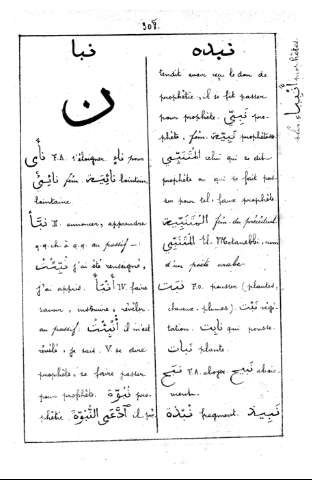 308.
نبا
ن
نَأَى F.A. s'éloigner نَاءٍ pour
نَائِىٌ fém. نَائِيَة lointain,
lointaine.
نَبَّأَ II. annoncer, apprendre
q.q.ch à q.q. au passif –
نُبِّئْتُ j'ai été renseigné,
j'ai appris. أَنْبَأَ IV faire
savoir, instruire, révéler.
au passif. أُنْبِئْتُ il m'est
révélé, je sais. V. se dire
prophète, se faire passer
pour prophète. نُبُوَّة pro-
phétie. اِدَّعَى النُّبُوَّة il pré
نبذه
tendit avoir reçu le don de
prophétie, il se fit passer
pour prophète. نَبِيّ pro-
phète, fém. نَبِيَّة prophétesse
المُتَنَبِّي celui qui se dit
prophète ou qui se fait pas-
ser pour tel, faux prophète
المُتَنَبِّيَة fém. du précédent
المُتَنَبِّي El. Motanebbi, nom
d'un poète arabe.
نَبَت F.O. pousser (plantes,
cheveux, plumes). نَبْت végé-
tation. نَابِت qui pousse.
نَبَات plante.
نَبَح F.A. aboyer. نَبِيح aboie-
ment.
نَبِيذ نُبْذَة fragment.
plur. أَنْبِيَاء prophètes